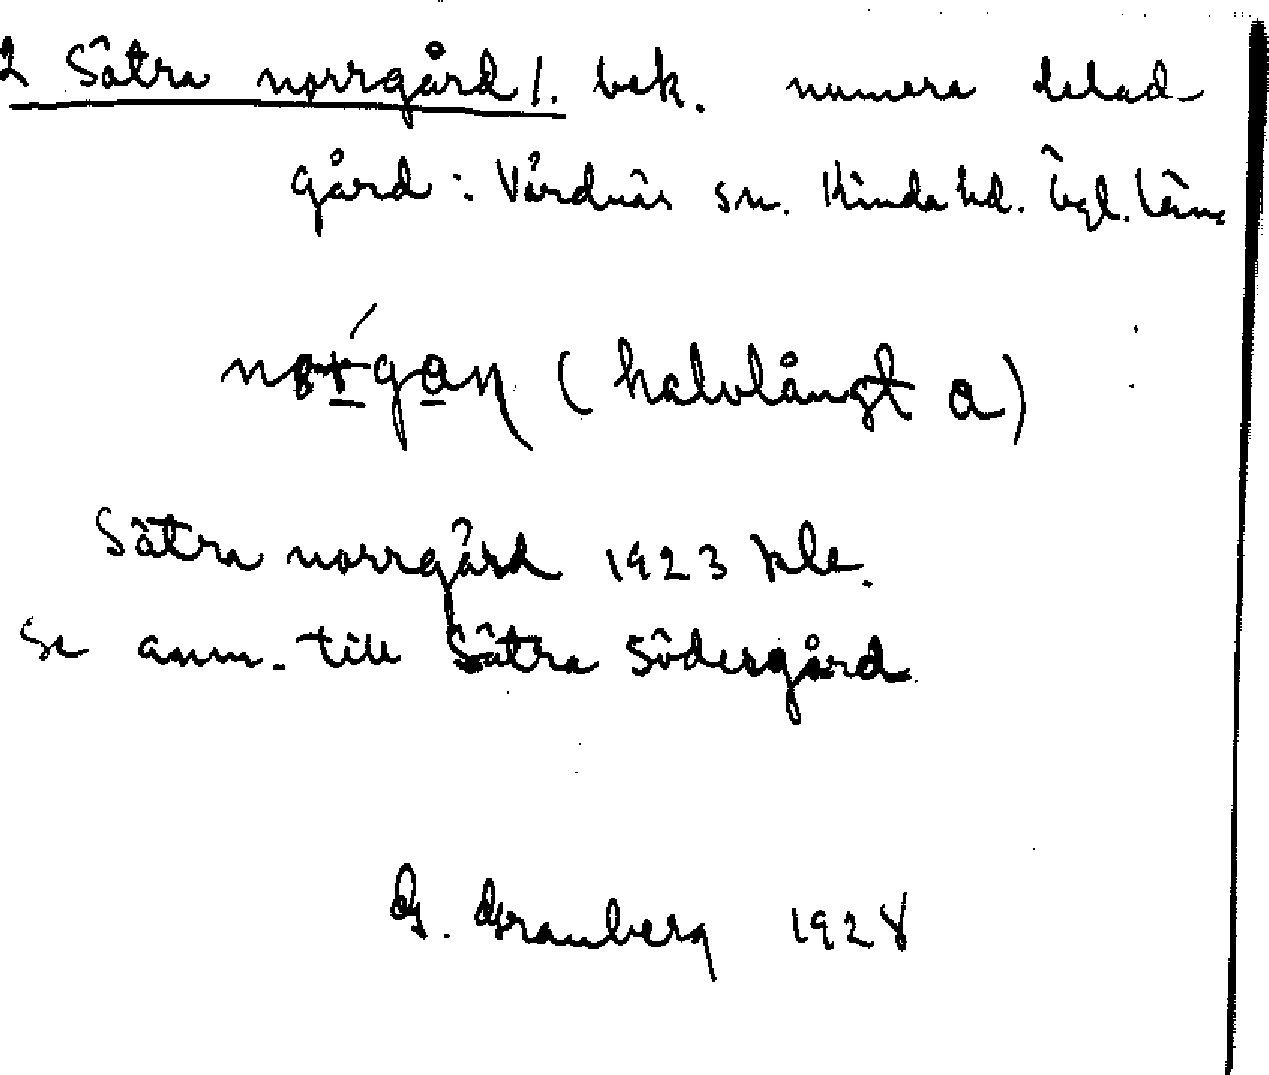 2 Sätra norrgård/. bek. numera delad
gård: Vårdnäs sn. Kinda hd. Ögl. län.
(halvlångt a)
Sätra norrgård 1923 kle.
se anm. till Sätra södergård
G. Granberg 1928